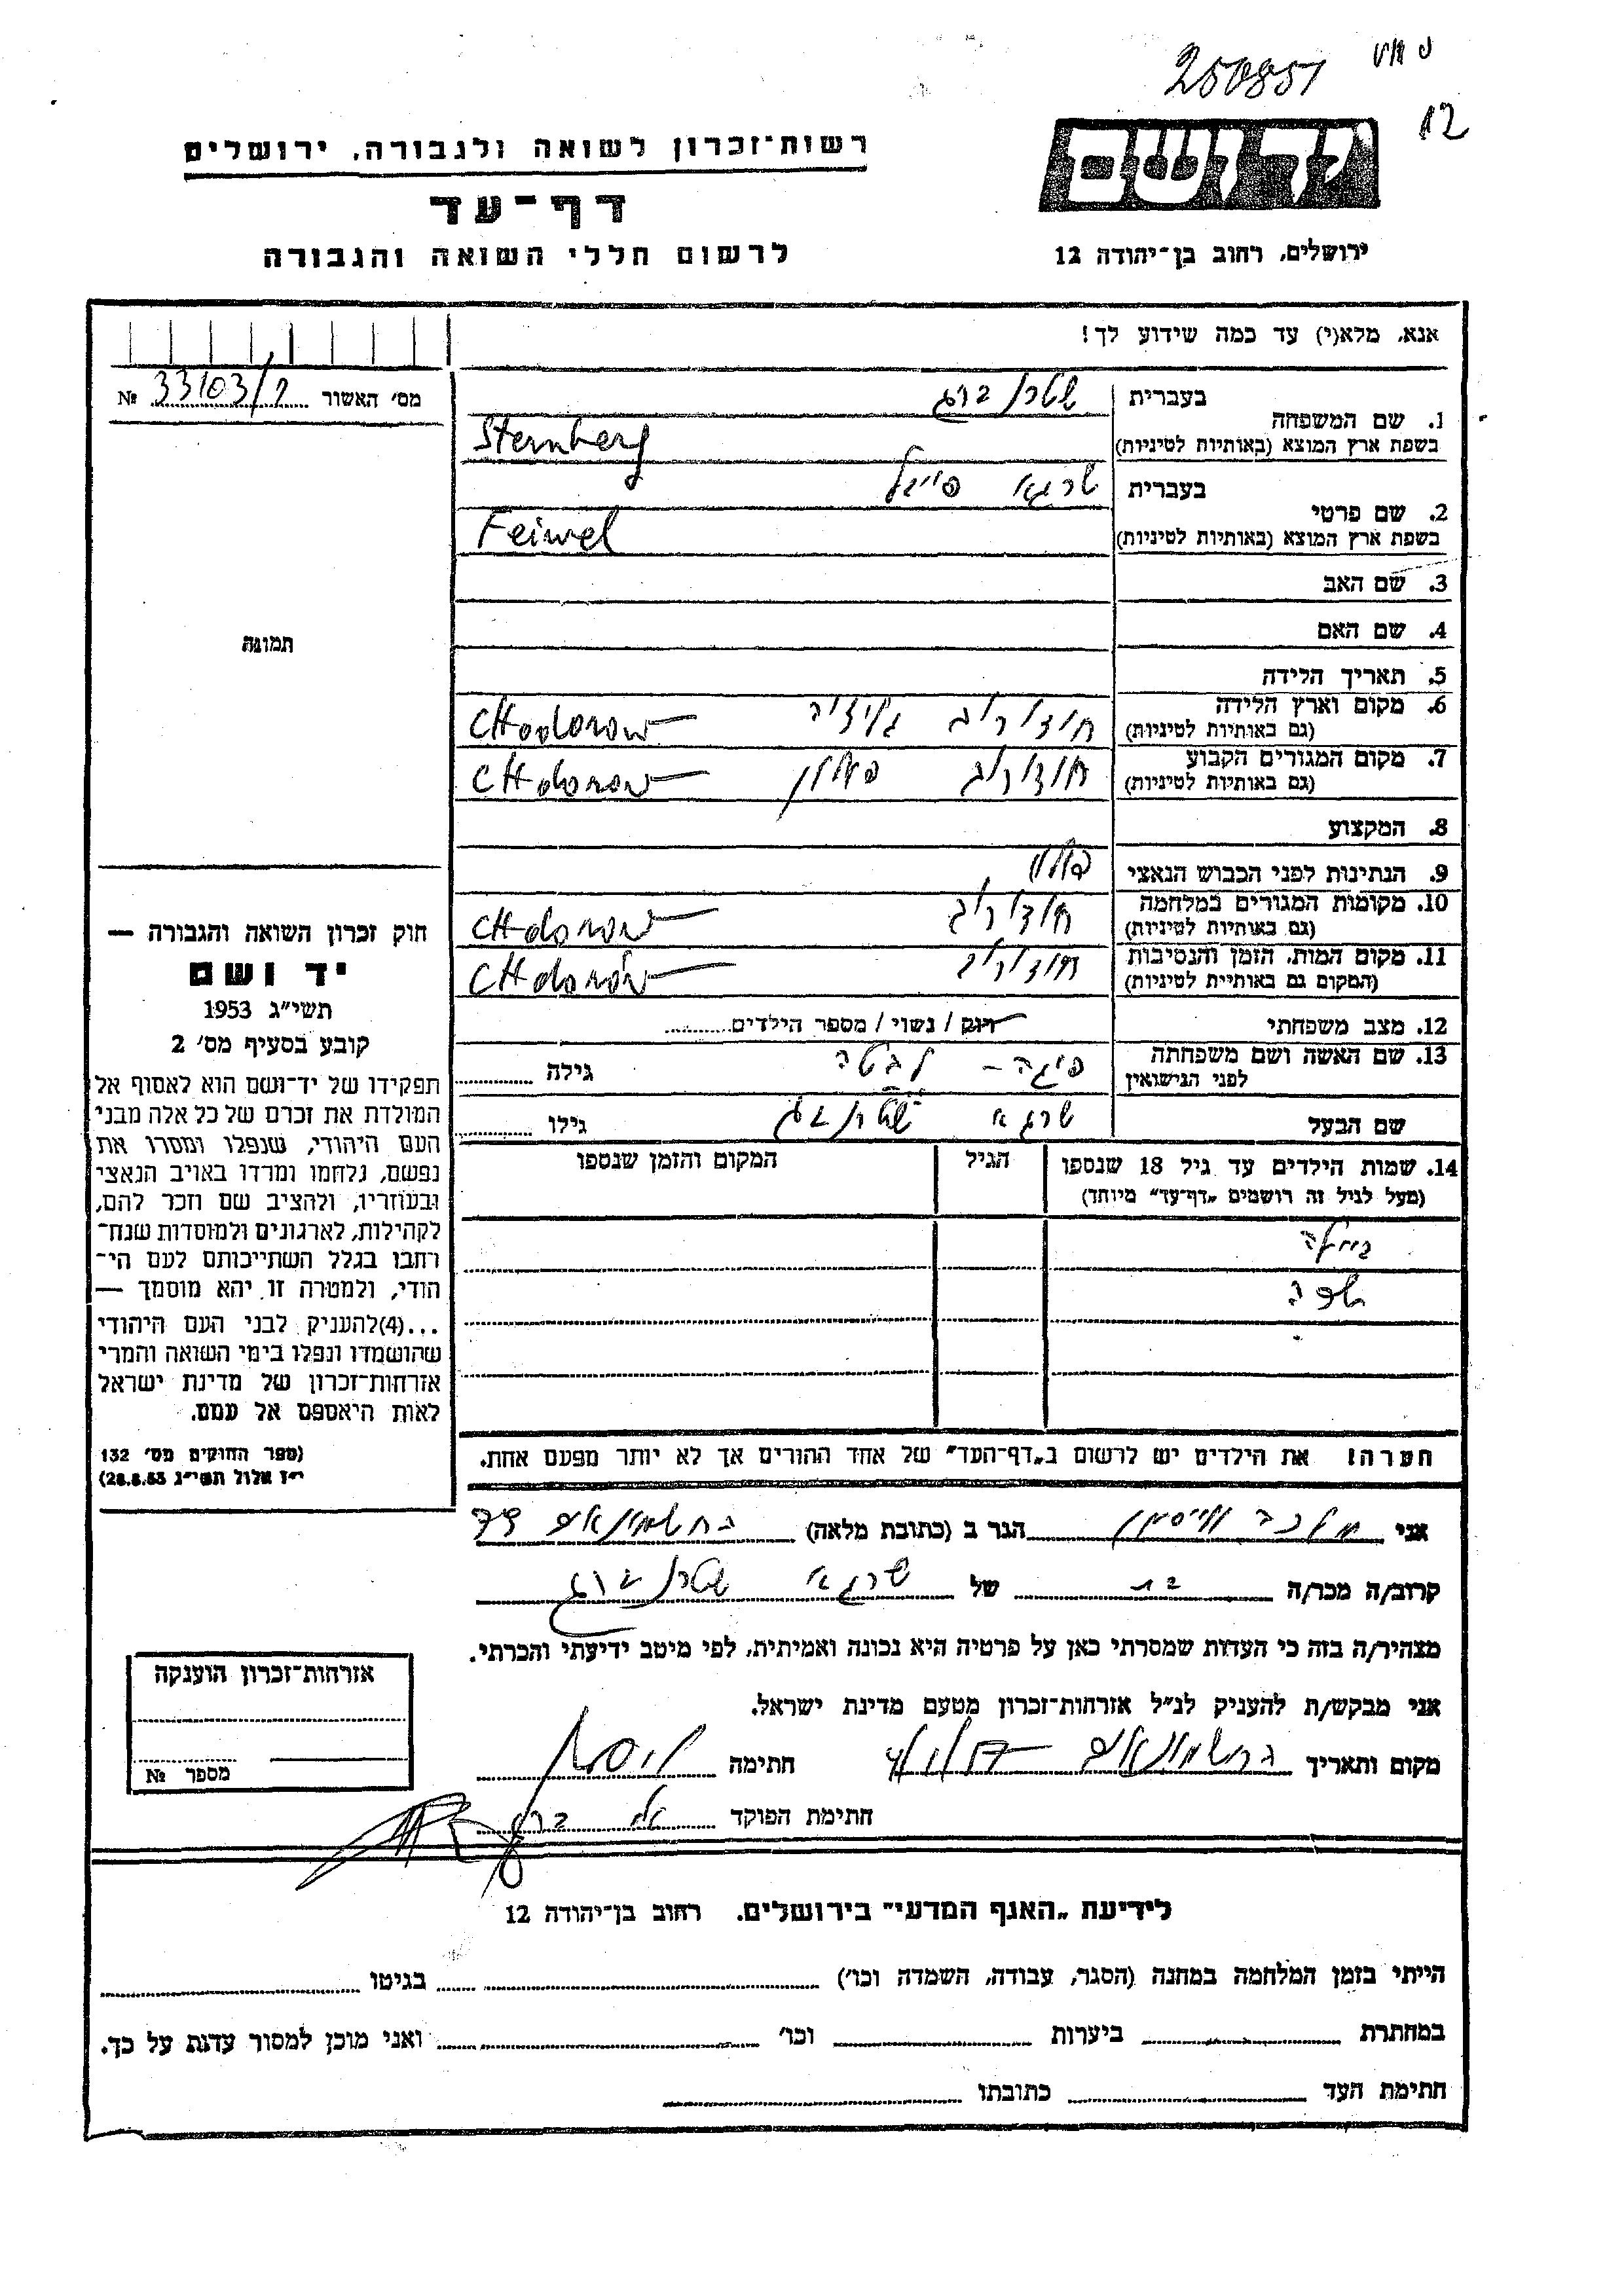 250851
12
רשות־זכרון לשואה ולגבורה, ירושלים
יד ושם
דף־עד
לרשום חללי השואה והגבורה
ירושלים, רחוב בן־יהודה 12
אנא, מלא(י) עד כמה שידוע לך!
מס׳ האשור № 33103/
1. שם המשפחה
בעברית שטרנברג
בשפת ארץ המוצא (באותיות לטיניות) Sternberg
2. שם פרטי
בעברית שרגא פייבל
בשפת ארץ המוצא (באותיות לטיניות) Feiwel
3. שם האב
4. שם האם
תמונה
5. תאריך הלידה
6. מקום וארץ הלידה
(גם באותיות לטיניות) חודורוב Chodorow
7. מקום המגורים הקבוע
(גם באותיות לטיניות) חודורוב פולין CHdorow
8. המקצוע
9. הנתינות לפני הכבוש הנאצי פולין
10. מקומות המגורים במלחמה
(גם באותיות לטיניות) חודורוב CHdorow
11. מקום המות, הזמן והנסיבות
(המקום גם באותיית לטיניות) חודורוב CHdorow
12. מצב משפחתי רווק / נשוי / מספר הילדים
13. שם האשה ושם משפחתה
לפני הנישואין גילה
שם הבעל שרגא שטרנברג גילו
14. שמות הילדים עד גיל 18 שנספו הגיל המקום והזמן שנספו
(מעל לגיל זה רושמים „דף־עד” מיוחד)
ביילה
חוק זכרון השואה והגבורה —
יד ושם
תשי״ג 1953
קובע בסעיף מס׳ 2
תפקידו של יד־ושם הוא לאסוף אל
המולדת את זכרם של כל אלה מבני
העם היהודי, שנפלו ומסרו את
נפשם, נלחמו ומרדו באויב הנאצי
ובעוזריו, ולהציב שם וזכר להם,
לקהילות, לארגונים ולמוסדות שנח־
רבו בגלל השתייכותם לעם הי־
הודי, ולמטרה זו יהא מוסמך —
...(4)להעניק לבני העם היהודי
שהושמדו ונפלו בימי השואה והמרי
אזרחות־זכרון של מדינת ישראל
לאות היאספם אל עמם.
(ספר החוקים מס׳ 132
י״ז אלול תשי״ג 28.8.53)
הערה! את הילדים יש לרשום ב„דף־העד” של אחד ההורים אך לא יותר מפעם אחת.
אני מלכה הגר ב (כתובת מלאה)
קרוב/ה מכר/ה בת של שרגא שטרנברג
מצהיר/ה בזה כי העדות שמסרתי כאן על פרטיה היא נכונה ואמיתית, לפי מיטב ידיעתי והכרתי.
אני מבקש/ת להעניק לנ״ל אזרחות־זכרון מטעם מדינת ישראל.
מקום ותאריך חתימה
חתימת הפוקד
אזרחות־זכרון הוענקה
מספר №
לידיעת „האגף המדעי” בירושלים, רחוב בן־יהודה 12
הייתי בזמן המלחמה במחנה (הסגר, עבודה, השמדה וכו׳) בגיטו
במחתרת ביערות וכו׳ ואני מוכן למסור עדות על כך.
חתימת העד כתובתו